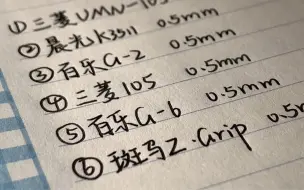 ①三菱UMN-105
②晨光K3511 0.5mm
③百乐G-2 0.5mm
④三菱105 0.5mm
⑤百乐G-6 0.5mm
⑥斑马Z·Grip 0.5